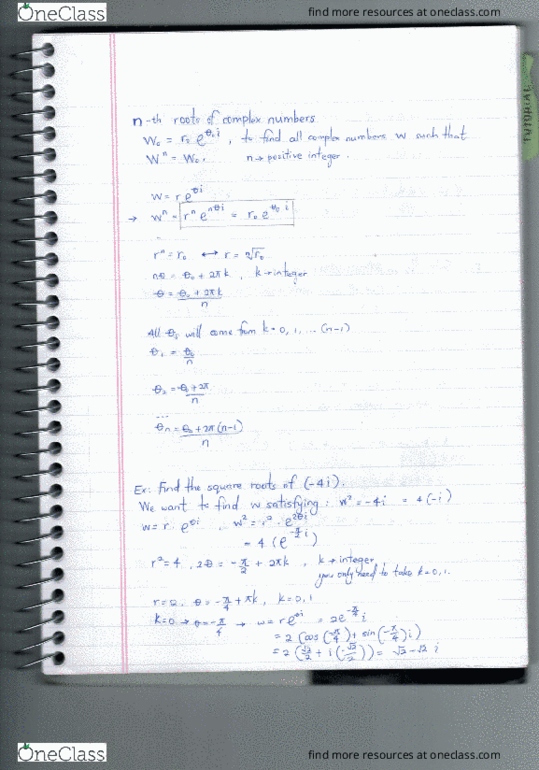 OneClass
find more resources at oneclass.com
TUTORIAL
n-th roots of complex numbers
W₀ = r₀ e^{θ₀i}, to find all complex numbers w such that
Wⁿ = W₀. n → positive integer.
w = r e^{θi}
→ wⁿ = rⁿ e^{nθi} = r₀ e^{θ₀i}
rⁿ = r₀ ↔ r = ⁿ√r₀
nθ = θ₀ + 2πk, k → integer
θ = (θ₀ + 2πk)/n
All θs will come from k = 0, 1, ... (n-1)
θ₁ = θ₀/n
θ₂ = (θ₀ + 2π)/n
...
θn = (θ₀ + 2π(n-1))/n
Ex: Find the square roots of (-4i).
We want to find w satisfying: w² = -4i = 4(-i)
w = r e^{θi}, w² = r² · e^{2θi}
= 4 (e^{-π/2 i})
r² = 4, 2θ = -π/2 + 2πk, k → integer
you only need to take k = 0, 1.
r = 2, θ = -π/4 + πk, k = 0, 1
k = 0 → θ = -π/4 → w = r e^{θi} = 2e^{-π/4 i}
= 2 (cos(-π/4) + sin(-π/4)i)
= 2 (√2/2 + i(-√2/2)) = √2 - √2 i
OneClass
find more resources at oneclass.com